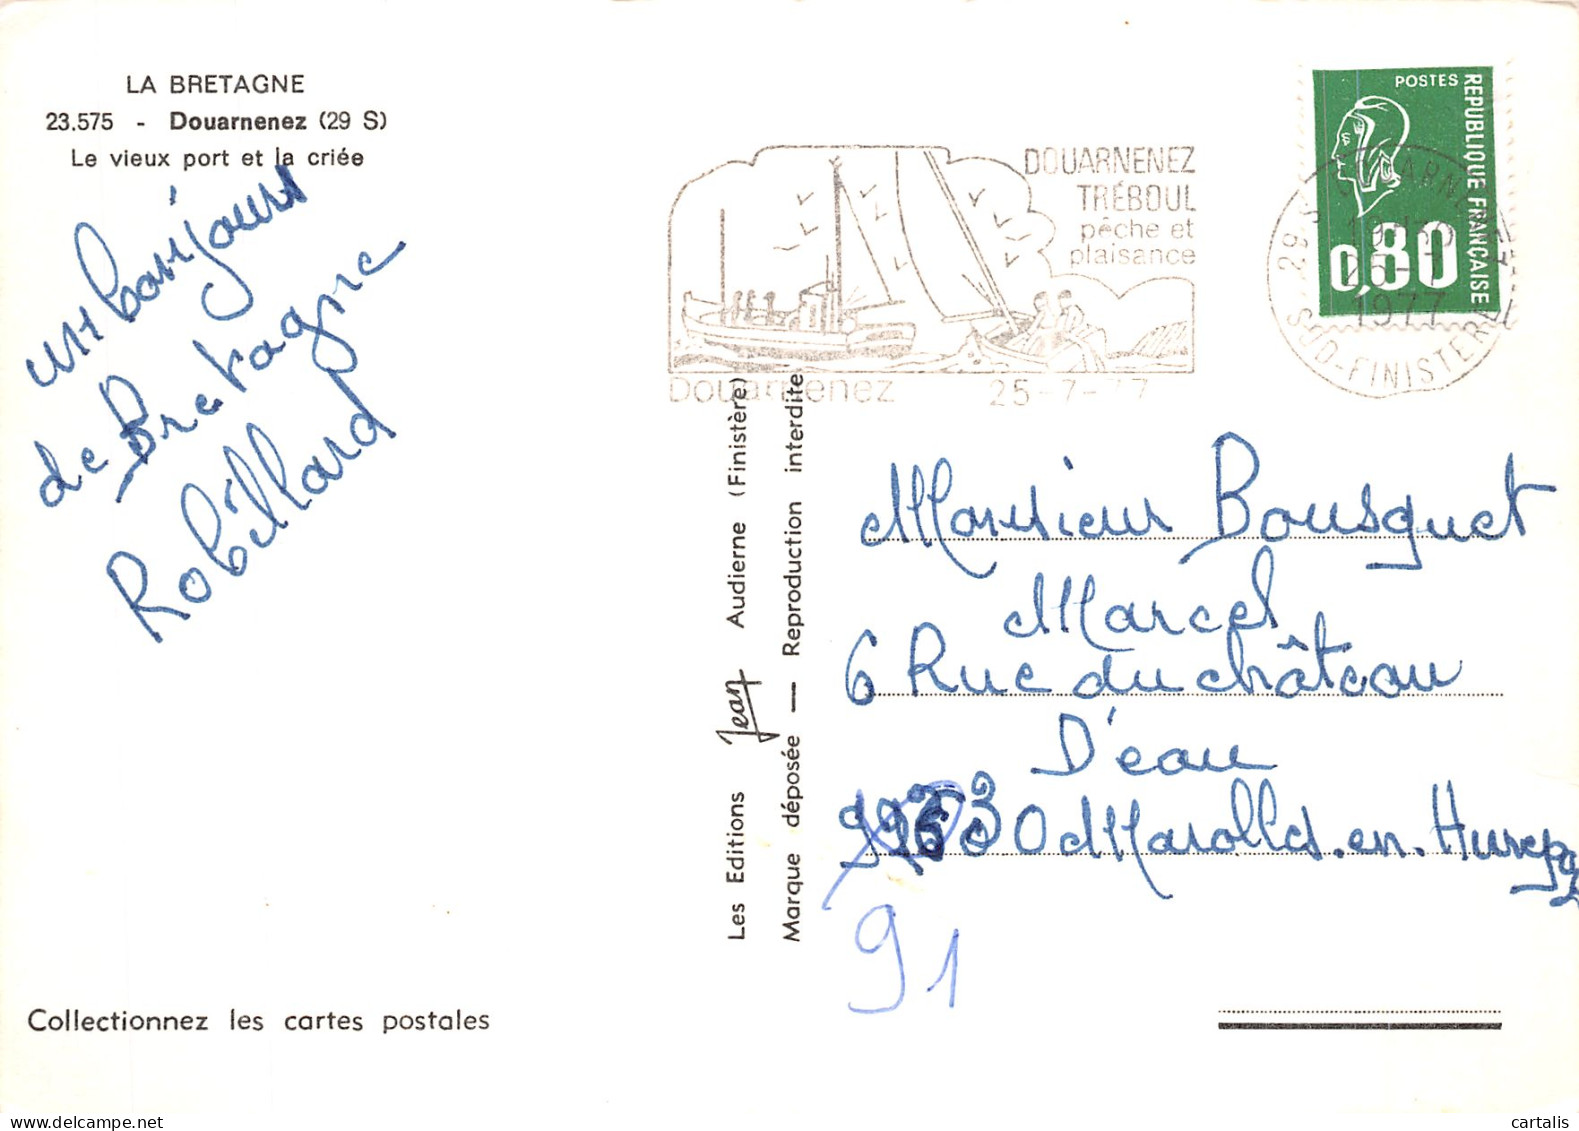 LA BRETAGNE
23.575 - Douarnenez (29 S)
Le vieux port et la criée
un bonjour
de Bretagne
Robillard
Collectionnez les cartes postales
Les Editions Jean Audierne (Finistère)
Marque déposée — Reproduction interdite
DOUARNENEZ
TRÉBOUL
pêche et
plaisance
Douarnenez 25-7-77
POSTES
REPUBLIQUE FRANÇAISE
0,80
25-7
1977
SUD-FINISTERE
Monsieur Bousquet
Marcel
6 Rue du château
D'eau
Marolles.en.Hurepoix
91
cartalis